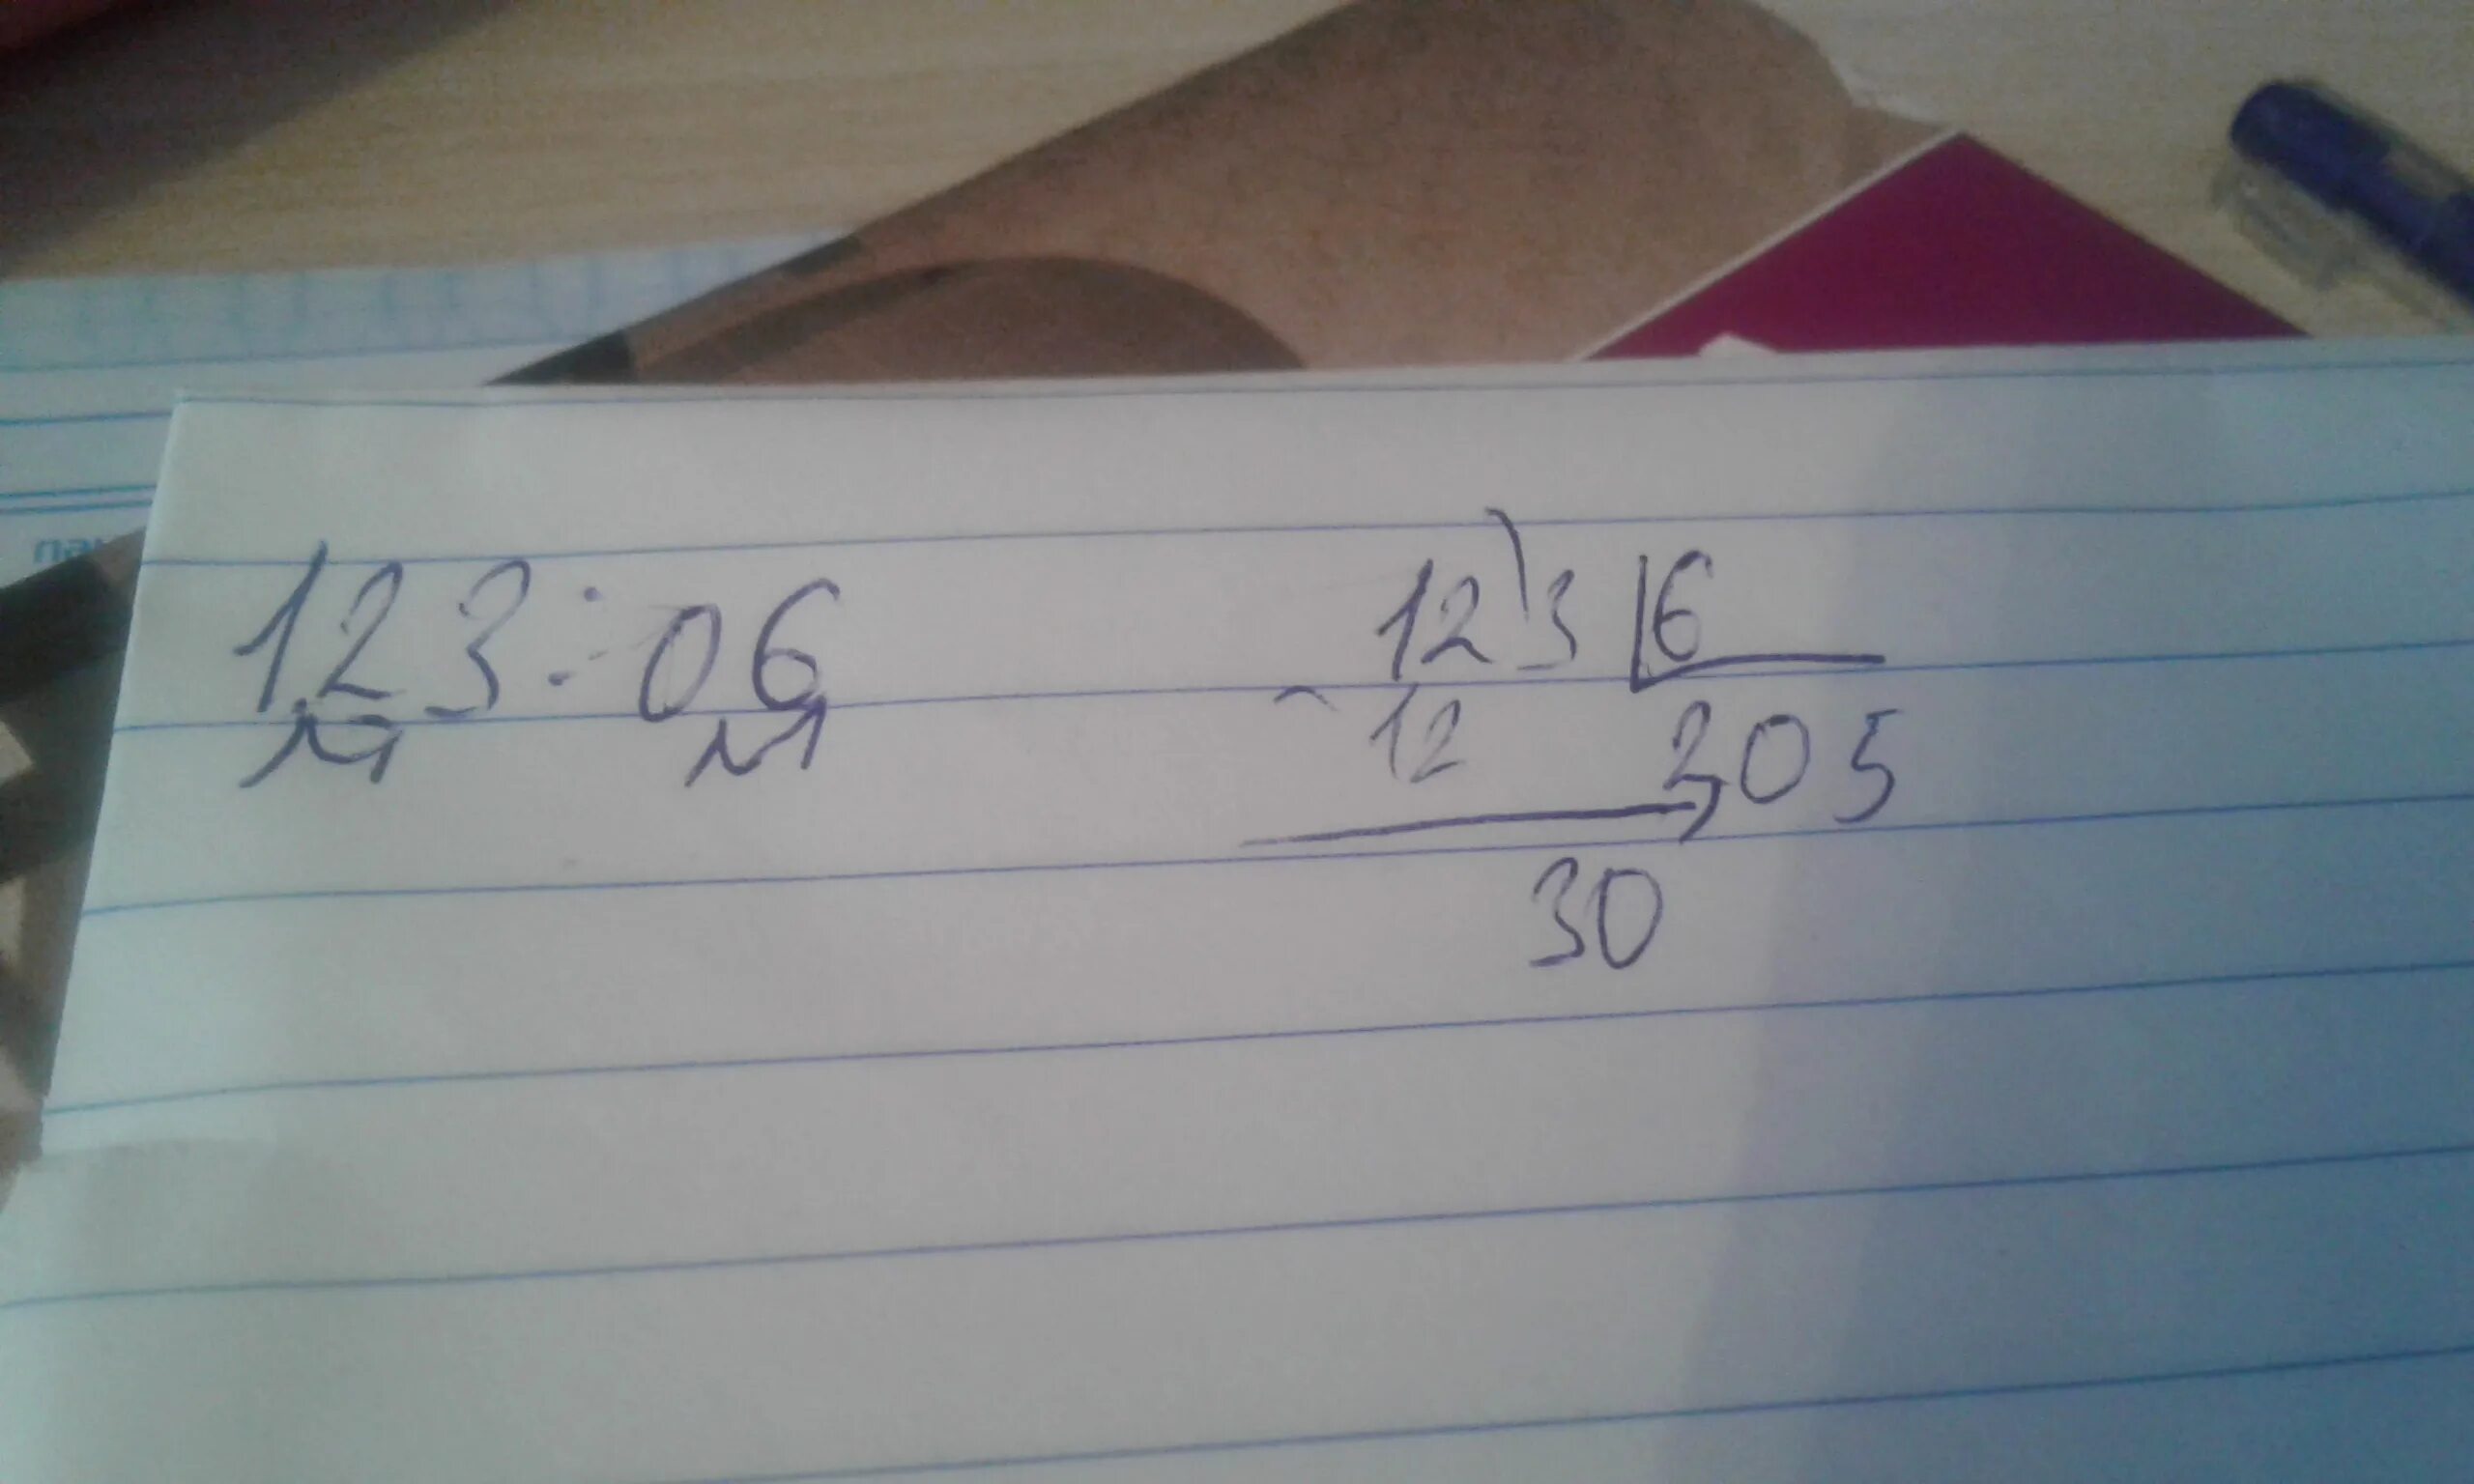 123 : 06
12 3 | 6
12 2,05
30